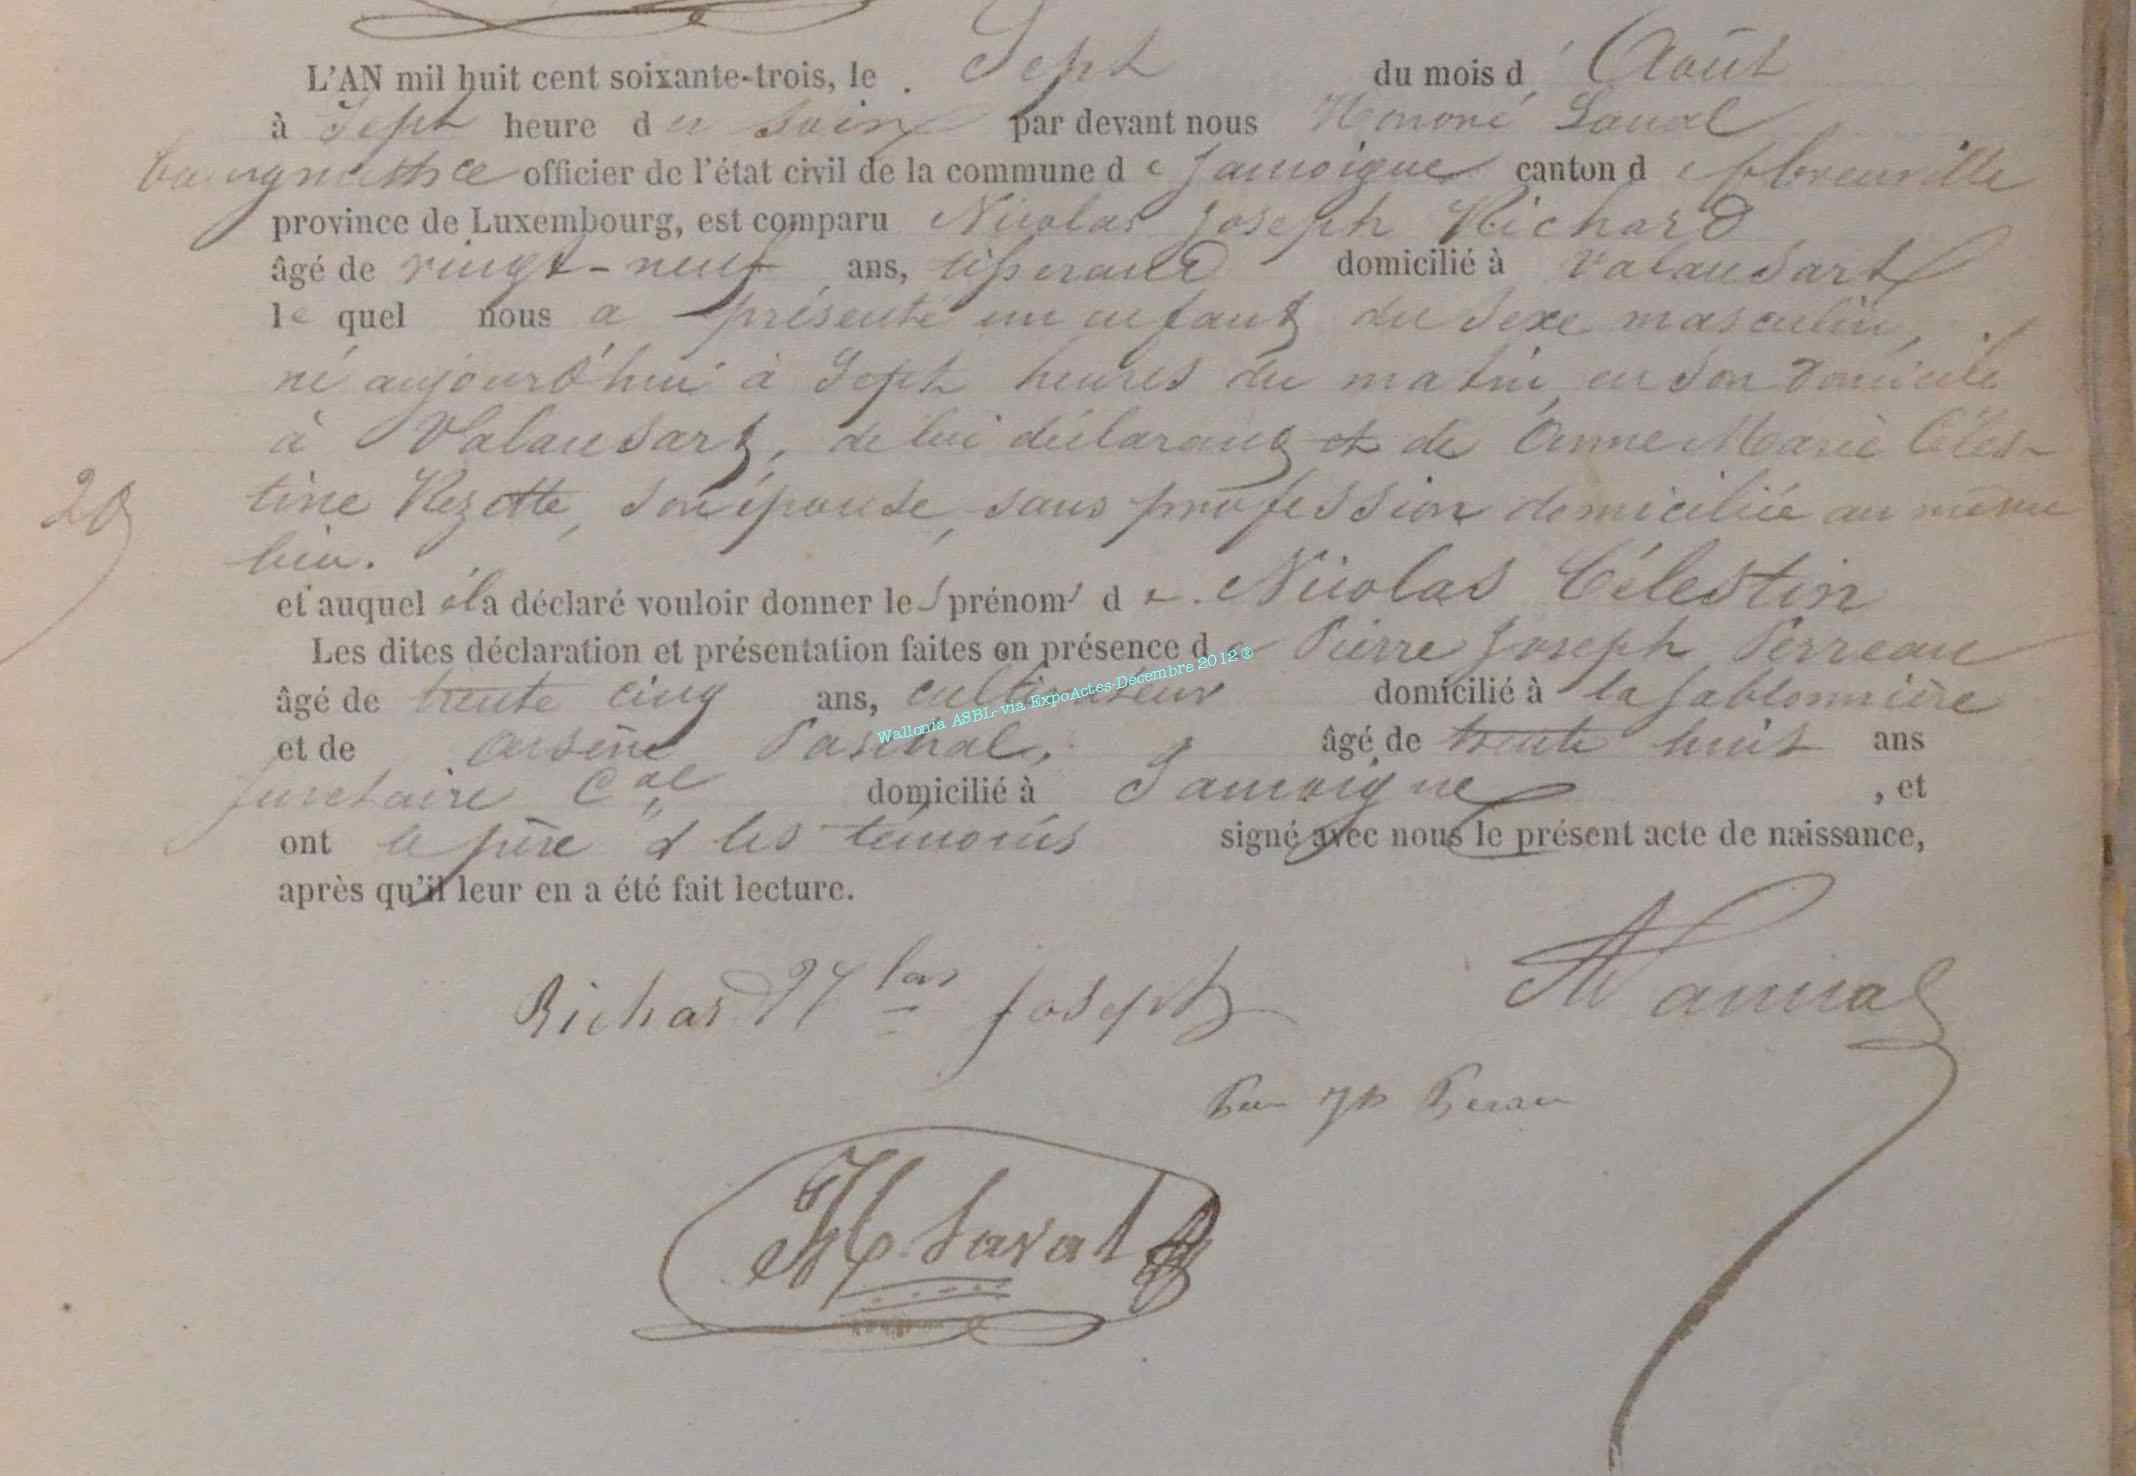 L'AN mil huit cent soixante-trois, le Sept du mois d'Août
à Sept heure du soir par devant nous Honoré Laval
bourgmestre officier de l'état civil de la commune de Jamoigne canton de florenville
province de Luxembourg, est comparu Nicolas Joseph Richard
âgé de vingt-neuf ans, tisserand domicilié à Valansart
lequel nous a présenté un enfant du sexe masculin,
né aujourd'hui à Sept heures du matin, en son domicile
à Valansart, de lui déclarant et de Anne Marie Céles-
tine Rezette, son épouse, sans profession domiciliée au même
lieu.
20
et auquel il a déclaré vouloir donner les prénoms de Nicolas Célestin
Les dites déclaration et présentation faites en présence de Pierre Joseph Perreau
âgé de trente cinq ans, cultivateur domicilié à la Sablonnière
Wallonia ASBL- via ExpoActes-Décembre 2012 ®
et de Arsène Paschal, âgé de trente huit ans
secrétaire Cal domicilié à Jamoigne, et
ont le père et les témoins signé avec nous le présent acte de naissance,
après qu'il leur en a été fait lecture.
Richard Nlas Joseph
H Laval